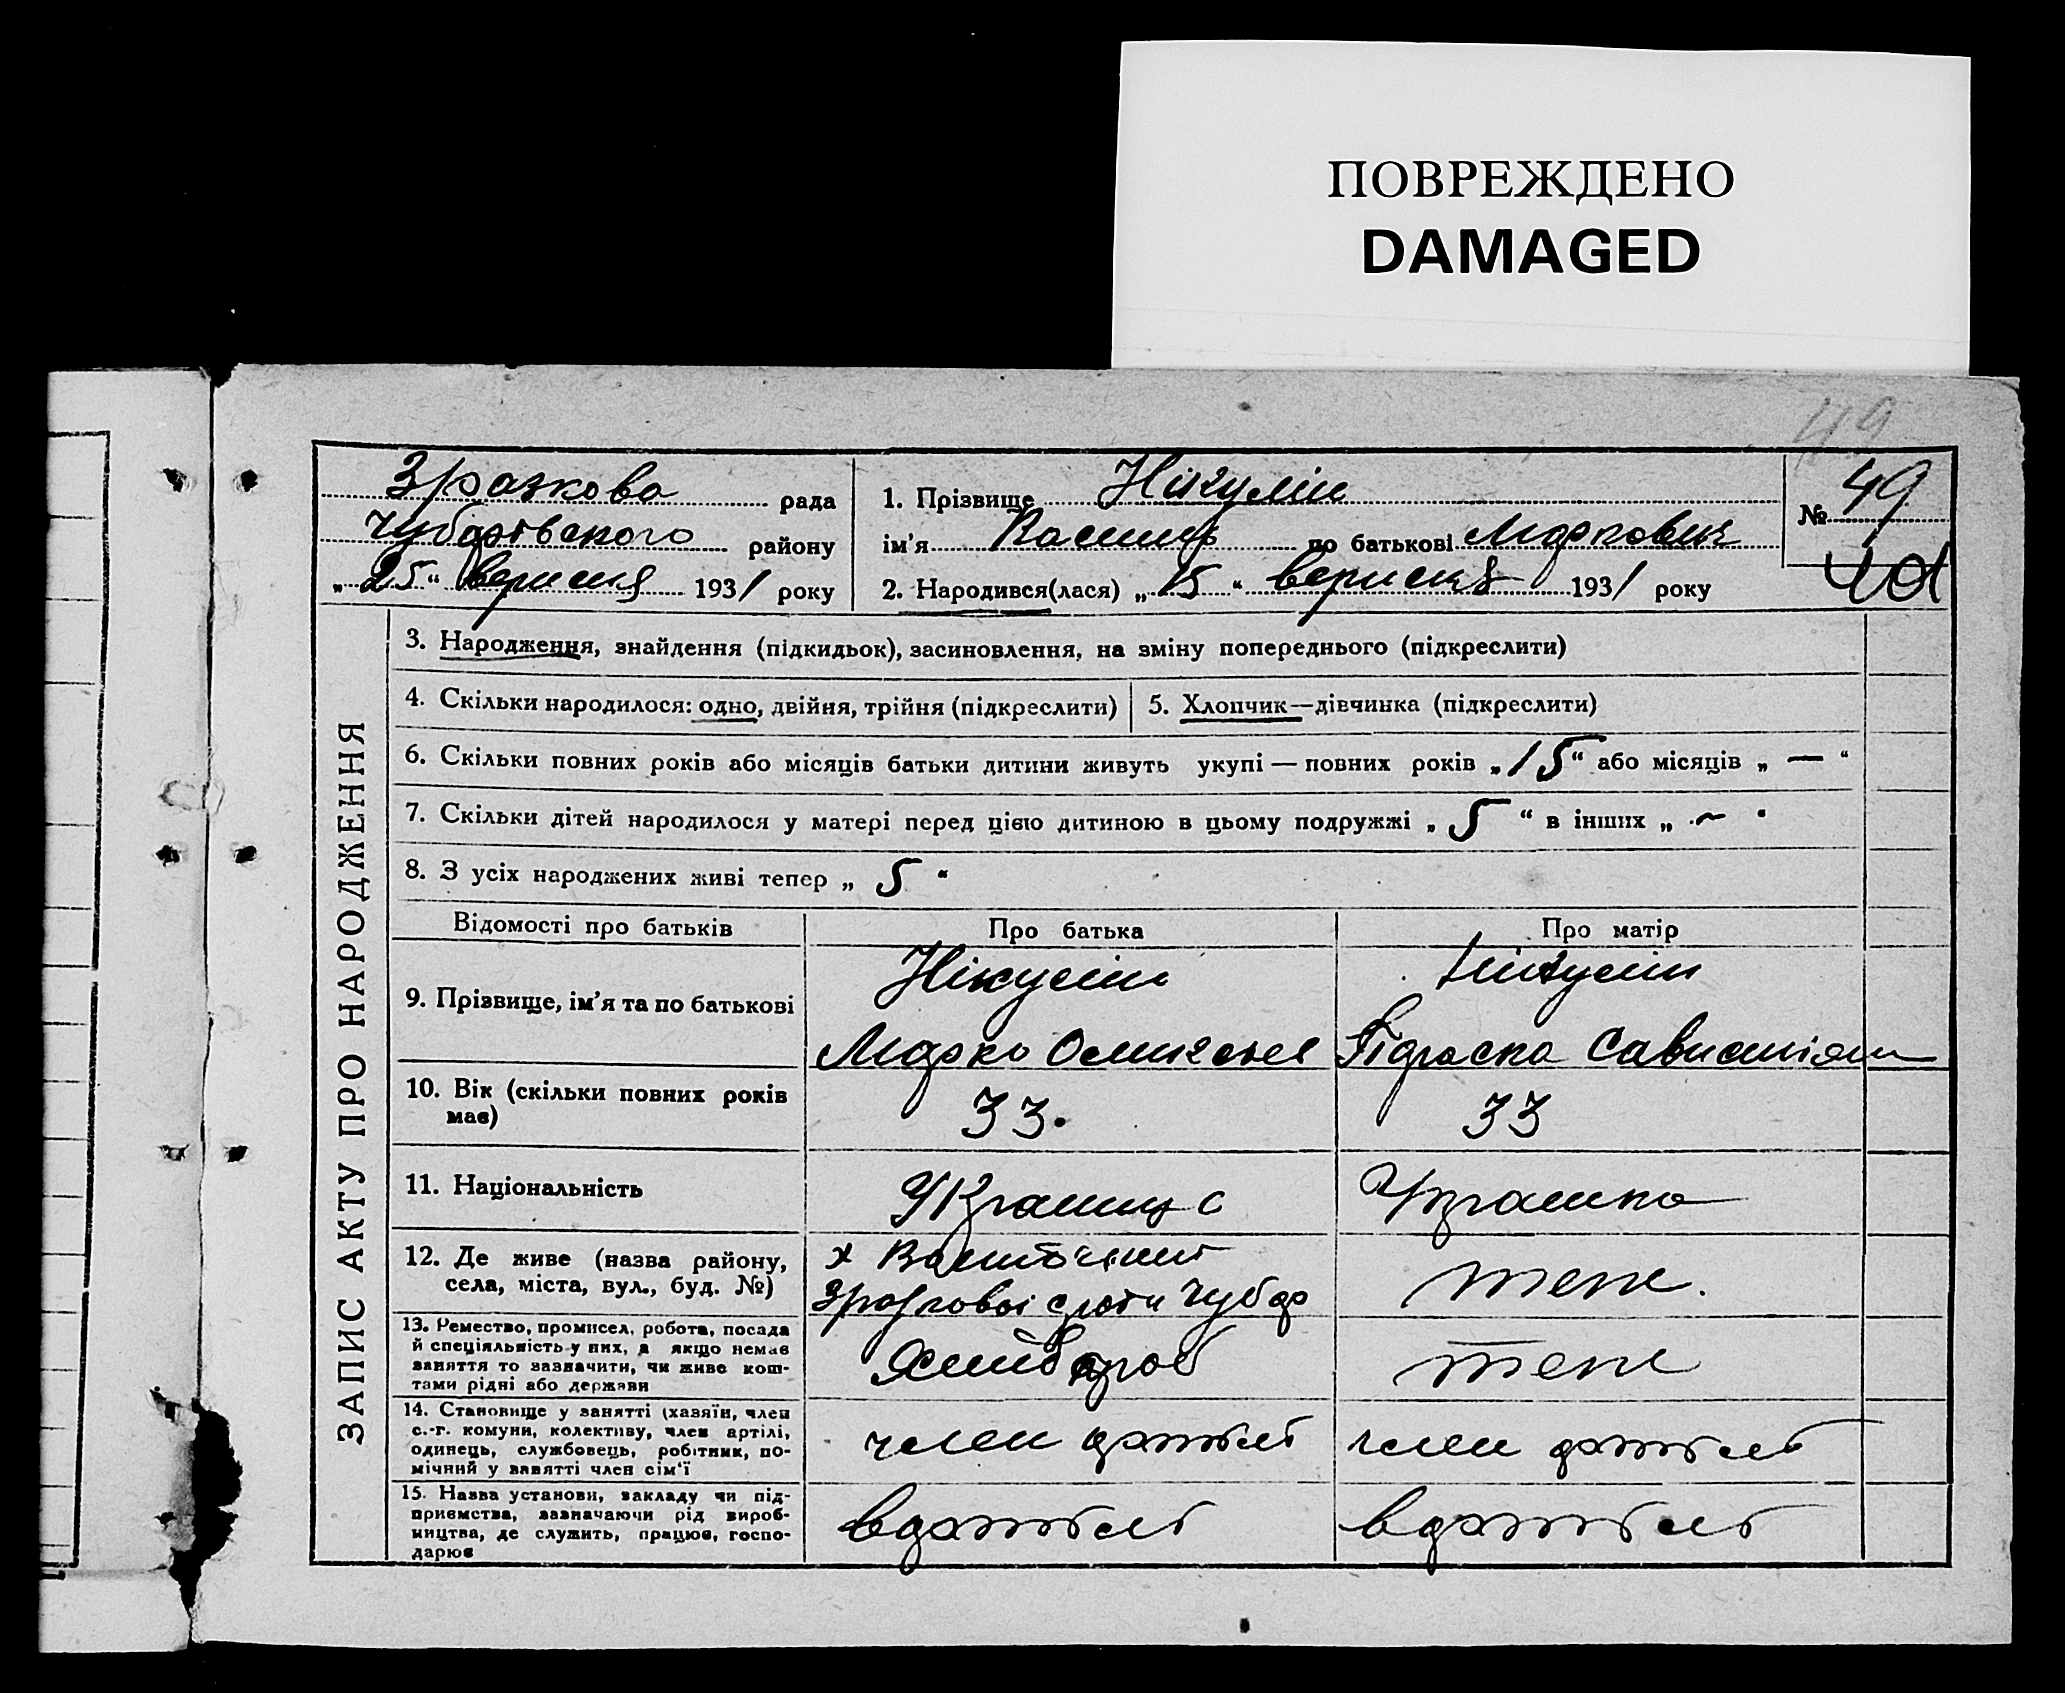 ПОВРЕЖДЕНО
DAMAGED
49
Зразкова рада
Чубарівського району
„25“ вересня 1931 року
1. Прізвище Нікулін
ім'я по батькові Маркович
2. Народився(лася) „15“ вересня 1931 року
№ 49
ЗАПИС АКТУ ПРО НАРОДЖЕННЯ
3. Народження, знайдення (підкидьок), засиновлення, на зміну попереднього (підкреслити)
4. Скільки народилося: одно, двійня, трійня (підкреслити)
5. Хлопчик—дівчинка (підкреслити)
6. Скільки повних років або місяців батьки дитини живуть укупі — повних років „15“ або місяців „—“
7. Скільки дітей народилося у матері перед цією дитиною в цьому подружжі „5“ в інших „—“
8. З усіх народжених живі тепер „5“
Відомості про батьків
Про батька
Про матір
9. Прізвище, ім'я та по батькові
Нікулін
Марко
Нікулін
Параска
10. Вік (скільки повних років
має)
33.
33
11. Національність
Українець
Українка
12. Де живе (назва району,
села, міста, вул., буд. №)
х
Зразкової с/ради Чубар
теж.
13. Ремество, промисел, робота, посада
й спеціяльність у них, а якщо немає
заняття то зазначити, чи живе кош-
тами рідні або держави
Хлібороб
теж
14. Становище у занятті (хазяїн, член
с.-г. комуни, колективу, член артілі,
одинець, службовець, робітник, по-
мічний у занятті член сім'ї
член артілі
член артілі
15. Назва установи, закладу чи під-
приємства, зазначаючи рід вироб-
ництва, де служить, працює, госпо-
дарює
в артілі
в артілі